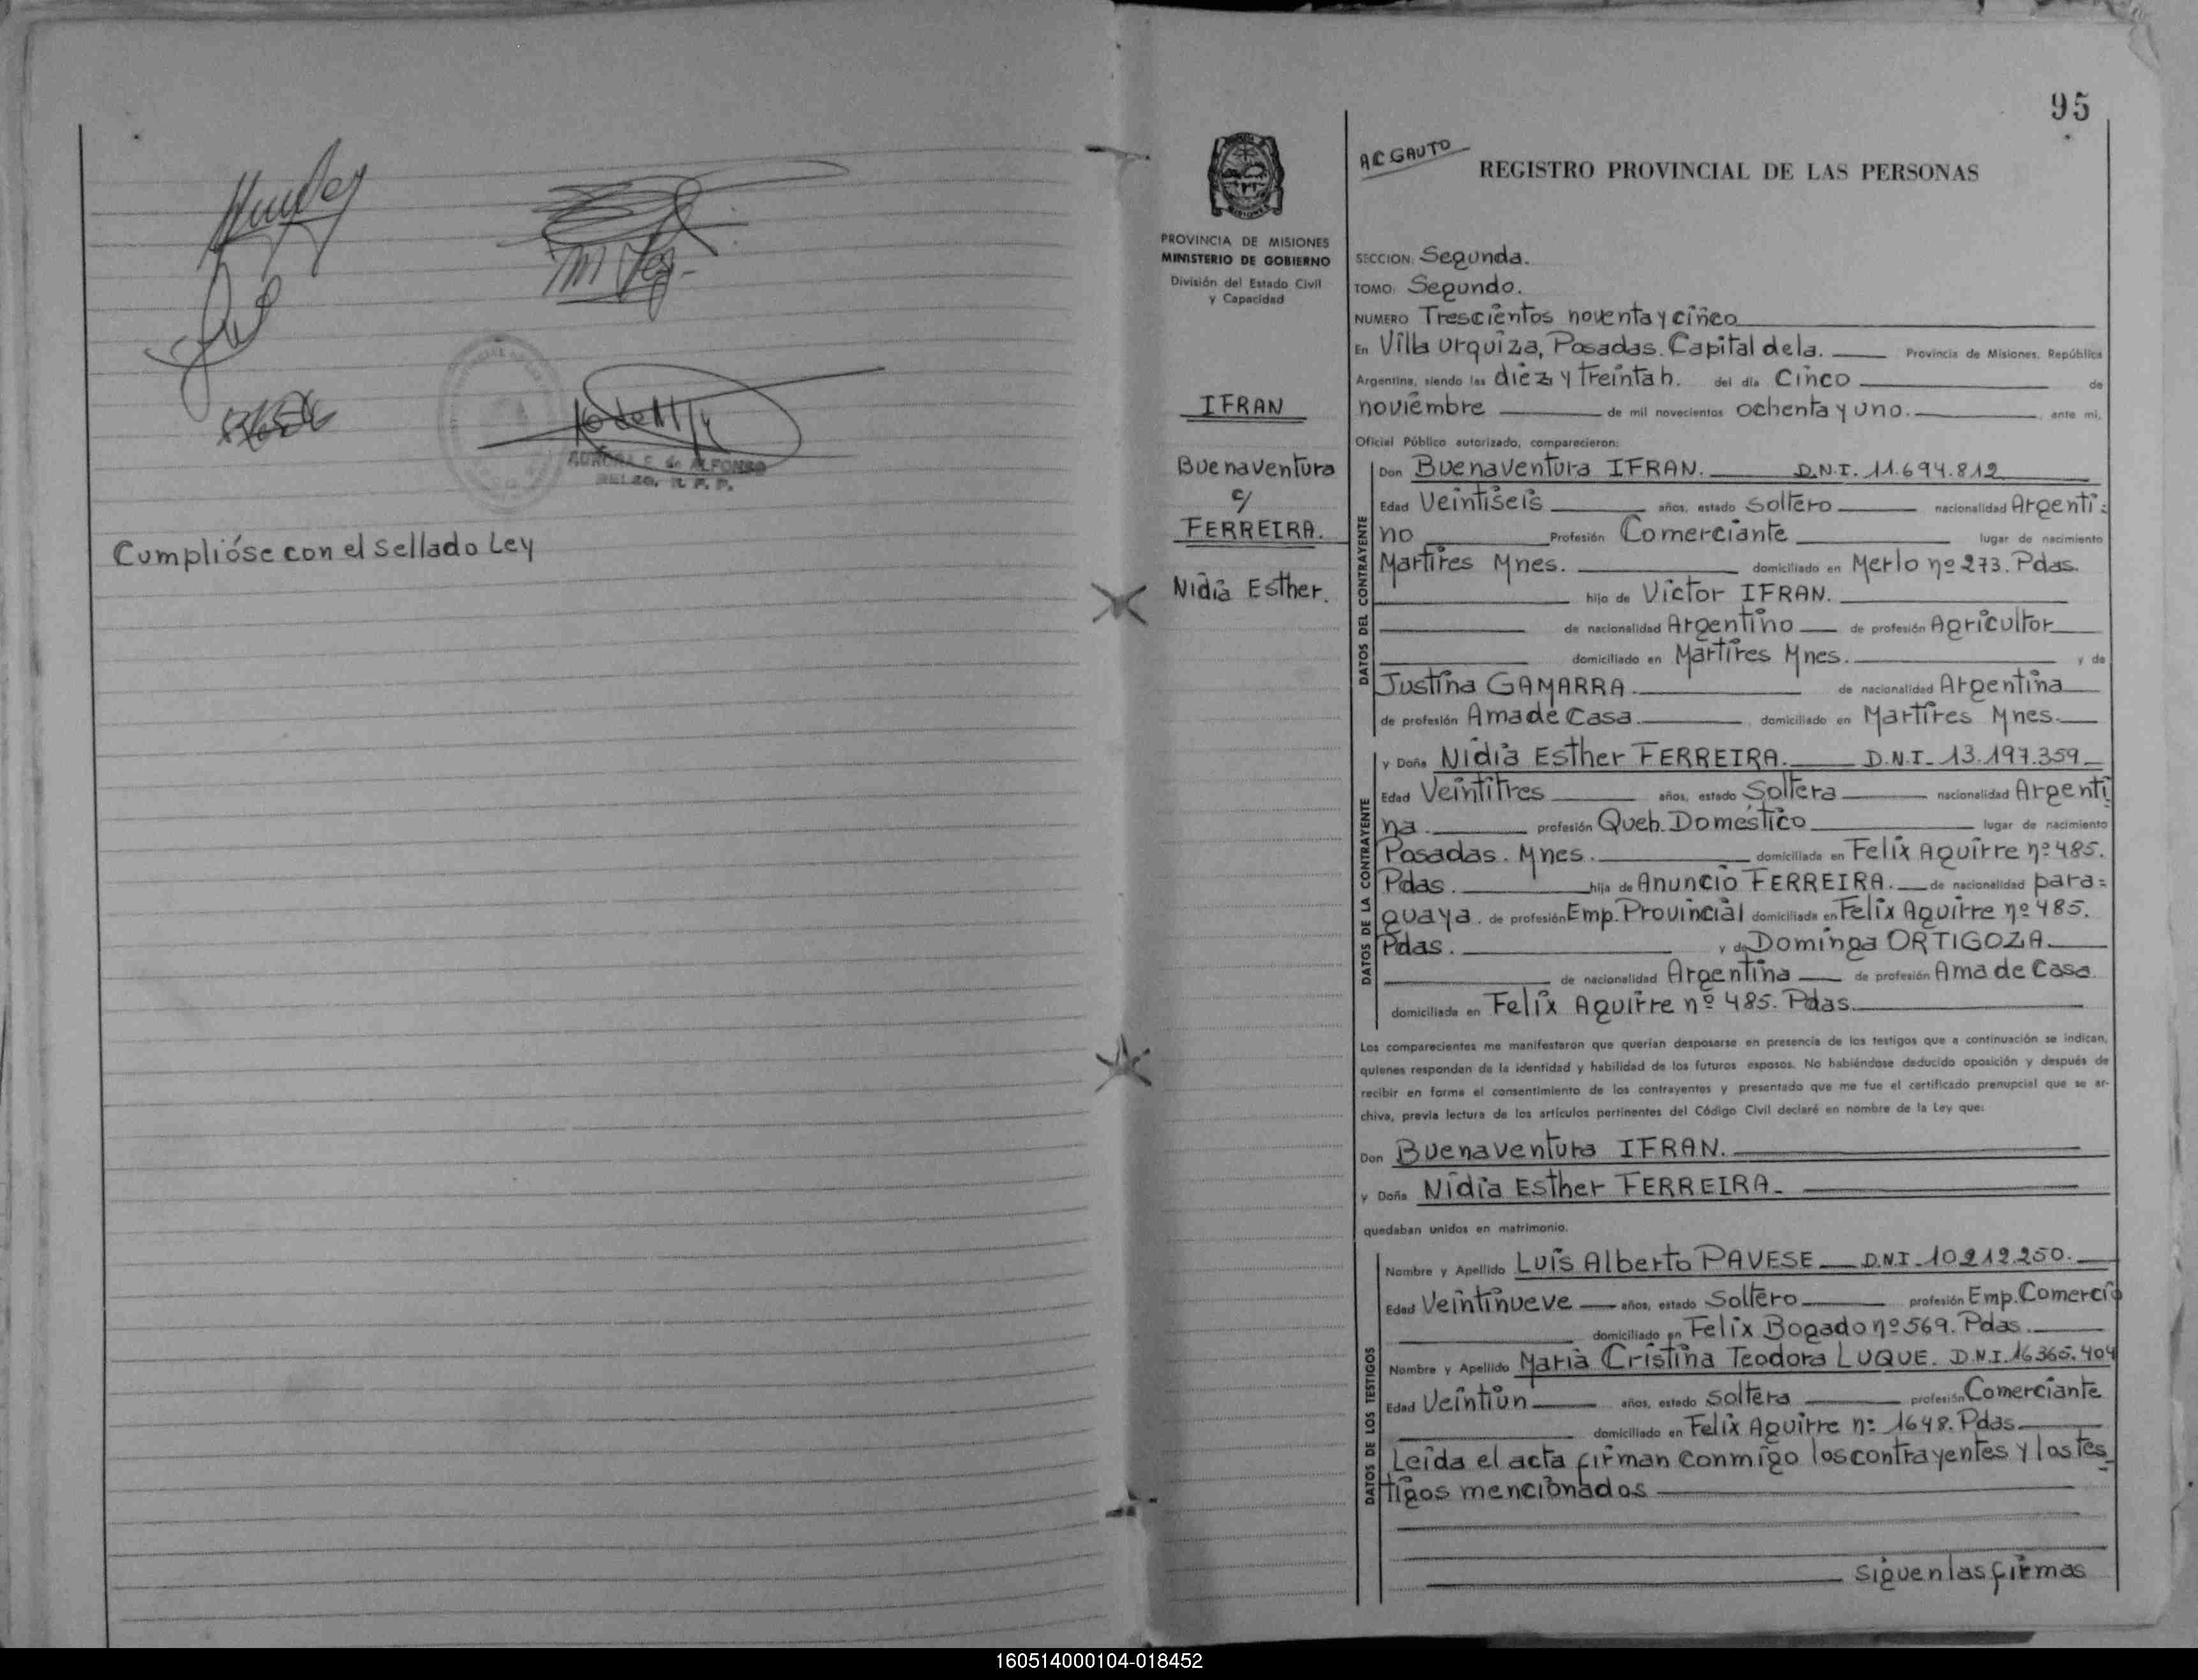 Cumplióse con el sellado Ley
95
AC GAUTO
REGISTRO PROVINCIAL DE LAS PERSONAS
PROVINCIA DE MISIONES
MINISTERIO DE GOBIERNO
División del Estado Civil
y Capacidad
IFRAN
Buenaventura
c/
FERREIRA.
Nidia Esther.
SECCION: Segunda.
TOMO: Segundo.
NUMERO Trescientos noventa y cinco
En Villa Urquiza, Posadas. Capital de la. Provincia de Misiones, República
Argentina, siendo las diez y treinta h. del día Cinco de
noviembre de mil novecientos ochenta y uno. ante mi,
Oficial Público autorizado, comparecieron:
DATOS DEL CONTRAYENTE
Don Buenaventura IFRAN. D.N.I. 11.694.812
Edad Veintiseis años, estado Soltero nacionalidad Argenti=
no Profesión Comerciante lugar de nacimiento
Martires Mnes. domiciliado en Merlo nº 273. Pdas.
hijo de Victor IFRAN.
de nacionalidad Argentino de profesión Agricultor
domiciliado en Martires Mnes. y de
Justina GAMARRA. de nacionalidad Argentina
de profesión Ama de Casa. domiciliado en Martires Mnes.
DATOS DE LA CONTRAYENTE
y Doña Nidia Esther FERREIRA. D.N.I. 13.197.359
Edad Veintitres años, estado Soltera nacionalidad Argenti
na. profesión Queh. Domestico lugar de nacimiento
Posadas. Mnes. domiciliada en Felix Aguirre nº 485.
Pdas. hija de Anuncio FERREIRA. de nacionalidad para=
guaya. de profesión Emp. Provincial domiciliada en Felix Aguirre nº 485.
Pdas. y de Dominga ORTIGOZA.
de nacionalidad Argentina de profesión Ama de Casa
domiciliada en Felix Aguirre nº 485. Pdas.
Los comparecientes me manifestaron que querían desposarse en presencia de los testigos que a continuación se indican,
quienes responden de la identidad y habilidad de los futuros esposos. No habiéndose deducido oposición y después de
recibir en forma el consentimiento de los contrayentes y presentado que me fue el certificado prenupcial que se ar-
chiva, previa lectura de los artículos pertinentes del Código Civil declaré en nombre de la Ley que:
Don Buenaventura IFRAN.
y Doña Nidia Esther FERREIRA.
quedaban unidos en matrimonio.
DATOS DE LOS TESTIGOS
Nombre y Apellido Luis Alberto PAVESE D.N.I. 10.212.250.
Edad Veintinueve años, estado Soltero profesión Emp. Comercio
domiciliado en Felix Bogado nº 569. Pdas.
Nombre y Apellido Maria Cristina Teodora LUQUE. D.N.I. 16.365.404
Edad Veintiun años, estado Soltera profesión Comerciante
domiciliado en Felix Aguirre n: 1648. Pdas.
Leida el acta firman conmigo los contrayentes y los tes
tigos mencionados
siguen las firmas
160514000104-018452